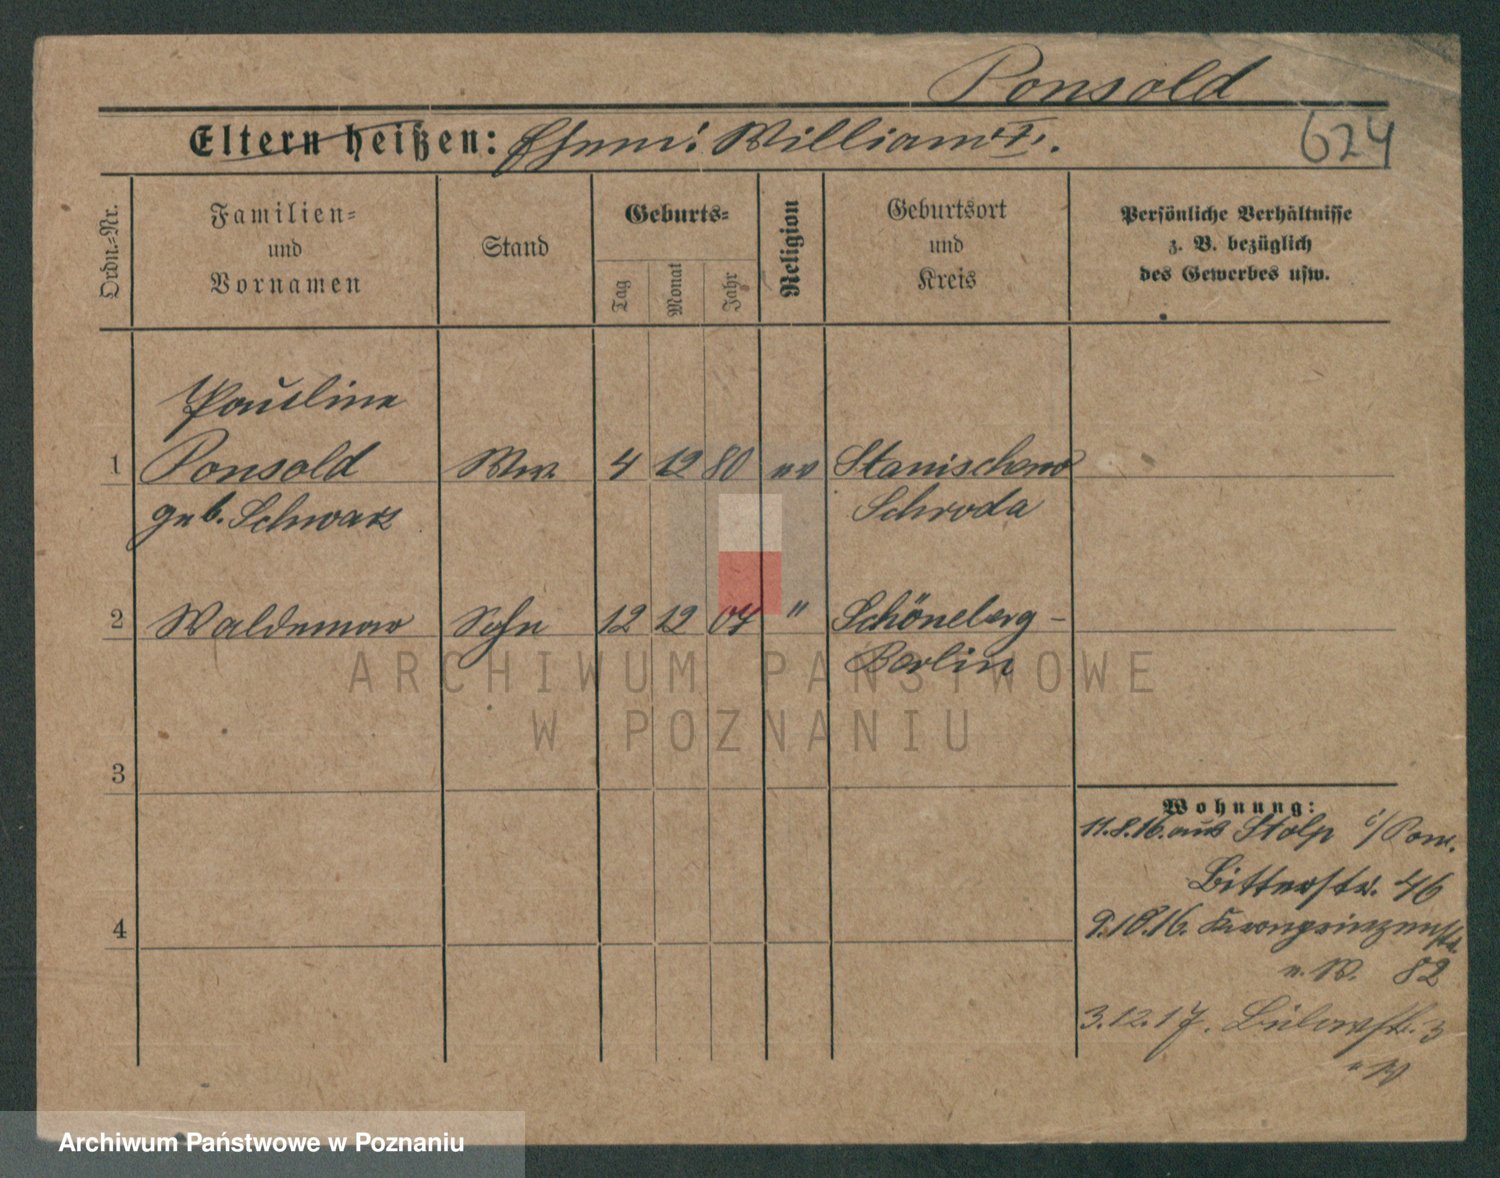 Ponsold
Eltern heißen: Ehem: William I.
624
Ordn.-Nr.
Familien=
und
Vornamen
Stand
Geburts=
Tag
Monat
Jahr
Religion
Geburtsort
und
Kreis
Persönliche Verhältnisse
z. B. bezüglich
des Gewerbes usw.
Pauline
1 Ponsold Ww. 4 12 80 ev
geb. Schwarz Schroda
2 Waldemar Sohn 12 12 04 " Schöneberg-
Berlin
ARCHIWUM PAŃSTWOWE
W POZNANIU
3
Wohnung:
11.8.16. aus Stolp i/Pom.
Bitterstr. 46
4
9.10.16. Kronprinzenstr.
b. W. 82
3.12.17. Bülowstr. 3
b W
Archiwum Państwowe w Poznaniu